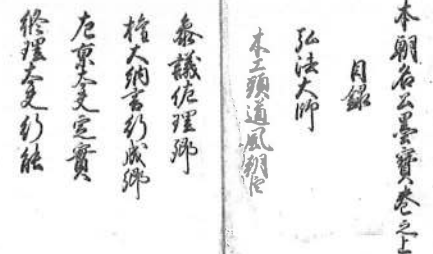 本朝名公墨寳巻之上
目録
弘法大師
木工頭道風朝臣
參議佐理卿
権大納言行成卿
左京大夫定實
修理大夫行能